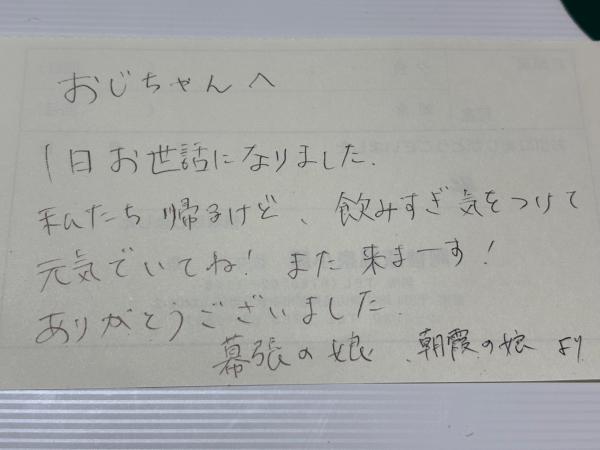 おじちゃんへ
1日お世話になりました.
私たち帰るけど、飲みすぎ気をつけて
元気でいてね!また来まーす!
ありがとうございました.
幕張の娘、朝霞の娘より